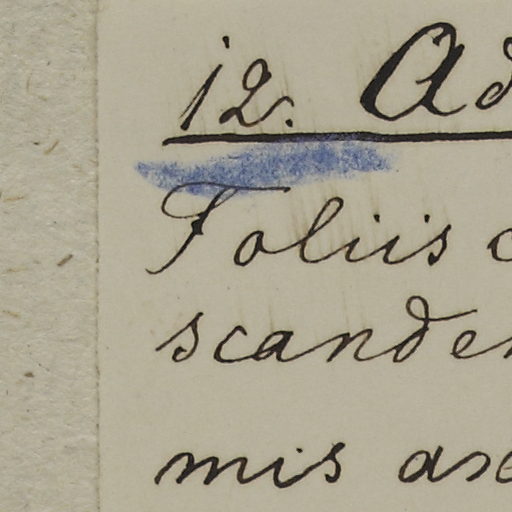 12. Ad
Foliis c
scanden
mis asc